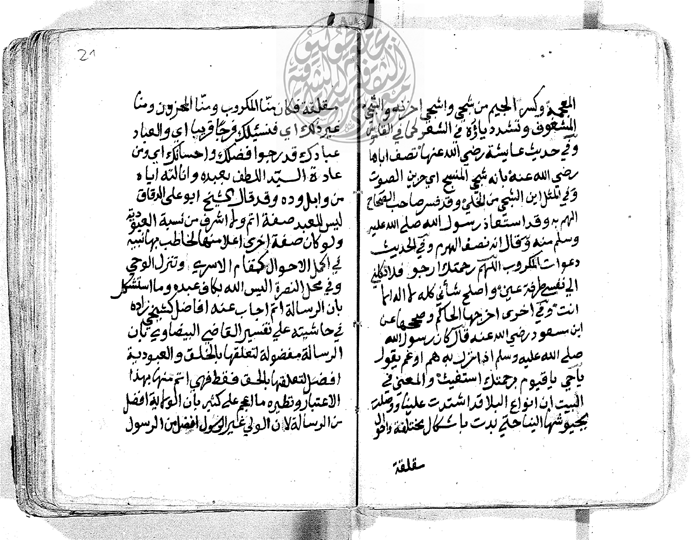 المعجمة وكسر الجيم من شجي واشجي احزنه والشجي
المشغوف وتشدد ياؤه في الشعر كما في القاموس
وفي حديث عايشة رضي الله عنها تصف اباها
رضي الله عنه بانه شجي النشيج اي حزين الصوت
وفي المثل اين الشجي من الخلي وقد فسر صاحب الصحاح
الهم به وقد استعاذ رسول الله صلى الله عليه
وسلم منه وقال انه نصف الهرم وفي الحديث
دعوات المكروب اللهم رحمتك ارجو فلا تكلني
الى نفسي طرفة عين واصلح شأني كله لا اله الا
انت وفي اخرى اخرجها الحاكم وصححها عن
ابن مسعود رضي الله عنه قال كان رسول الله
صلى الله عليه وسلم اذا نزل به هم او غم يقول
يا حي يا قيوم برحمتك استغيث والمعنى في
البيت ان انواع البلا قد اشتدت علينا ووصلت
بجيوشها الينا حتى بدت باشكال مختلفة واحوال
مقلقة
21
مقلقة فكان منا المكروب ومنا المحزون ومنا
غير ذلك اي فنسئلك فرجا قريبا اي والعباد
عبادك قد رجوا فضلك واحسانك اي ومن
عادة السيد اللطف بعبيده وانالته اياه
من وابل وده وقد قال الشيخ ابو علي الدقاق
ليس للعبد صفة اتم ولا اشرف من نسبة العبودية
ولو كان صفة اخرى اعلا منها لخاطب بها نبيه
في اكمل الاحوال كمقام الاسرى وتنزل الوحي
وفي محل النصرة اليس الله بكاف عبده وما استشكل
بان الرسالة اتم اجاب عنه افاضل كشيخي زاده
في حاشيته على تفسير القاضي البيضاوي بان
الرسالة مفضولة لتعلقها بالخلق والعبودية
افضل لتعلقها بالحق فقط فهي اتم منها بهذا
الاعتبار ونظيره ما اعجم على كثير بان الولاية افضل
من الرسالة لان الولي غير الرسول افضل من الرسول